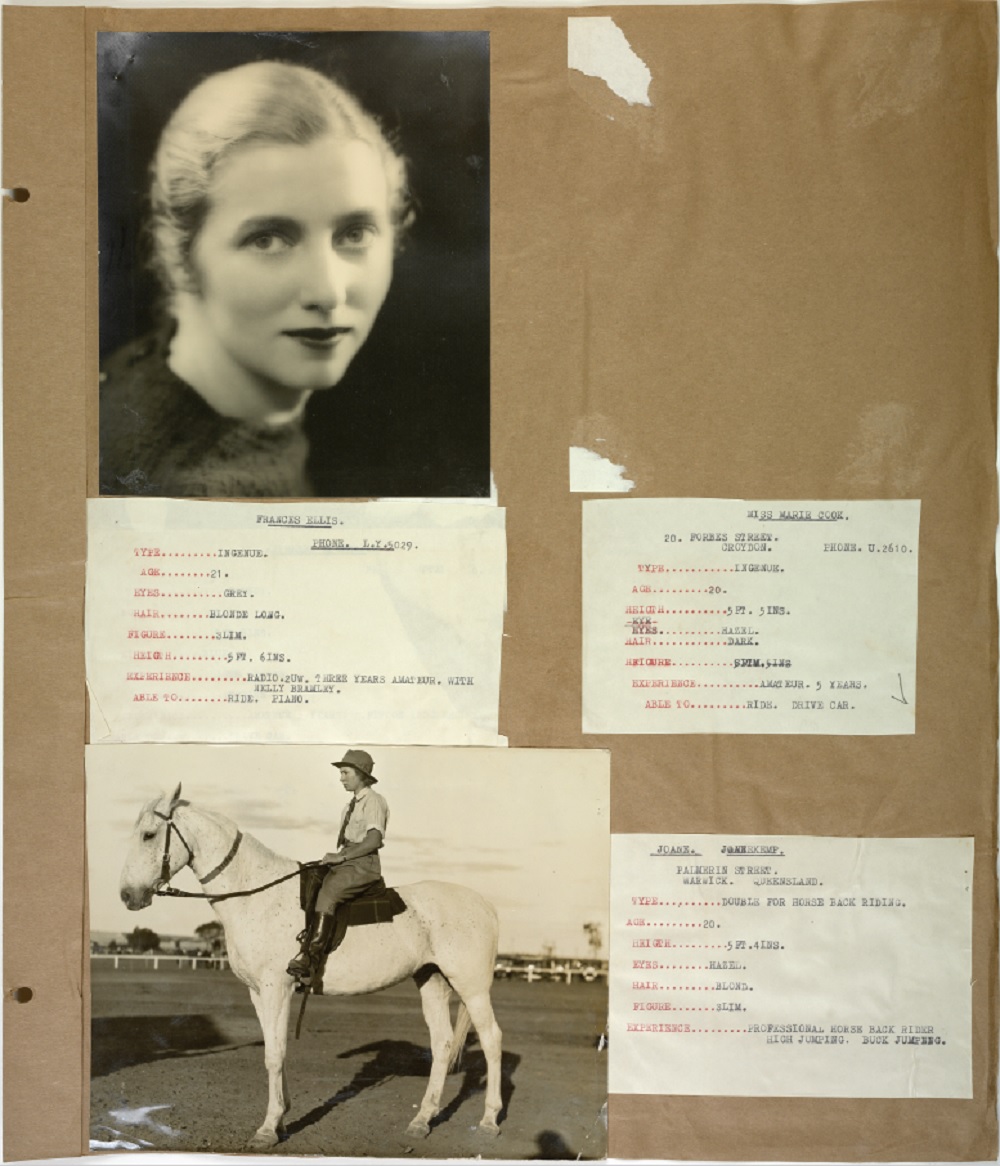 FRANCES ELLIS.
PHONE. L.Y.5029.
TYPE.........INGENUE.
AGE........21.
EYES..........GREY.
HAIR........BLONDE LONG.
FIGURE........SLIM.
HEIGTH.........5 FT. 6INS.
EXPERIENCE.........RADIO.2UW. THREE YEARS AMATEUR. WITH
NELLY BRAMLEY.
ABLE TO........RIDE. PIANO.
MISS MARIE COOK.
28. FORBES STREET.
CROYDON. PHONE. U.2610.
TYPE...........INGENUE.
AGE.........20.
HEIGTH..........5 FT. 5INS.
EYE
EYES..........HAZEL.
HAIR..........DARK.
EXPERIENCE..........AMATEUR. 5 YEARS.
ABLE TO.........RIDE. DRIVE CAR.
JOANE. KEMP.
PALMERIN STREET.
WARWICK. QUEENSLAND.
TYPE..........DOUBLE FOR HORSE BACK RIDING.
AGE.........20.
HEIGTH.........5 FT.4INS.
EYES........HAZEL.
HAIR.........BLOND.
FIGURE.......SLIM.
EXPERIENCE.........PROFESSIONAL HORSE BACK RIDER
HIGH JUMPING. BUCK JUMPING.